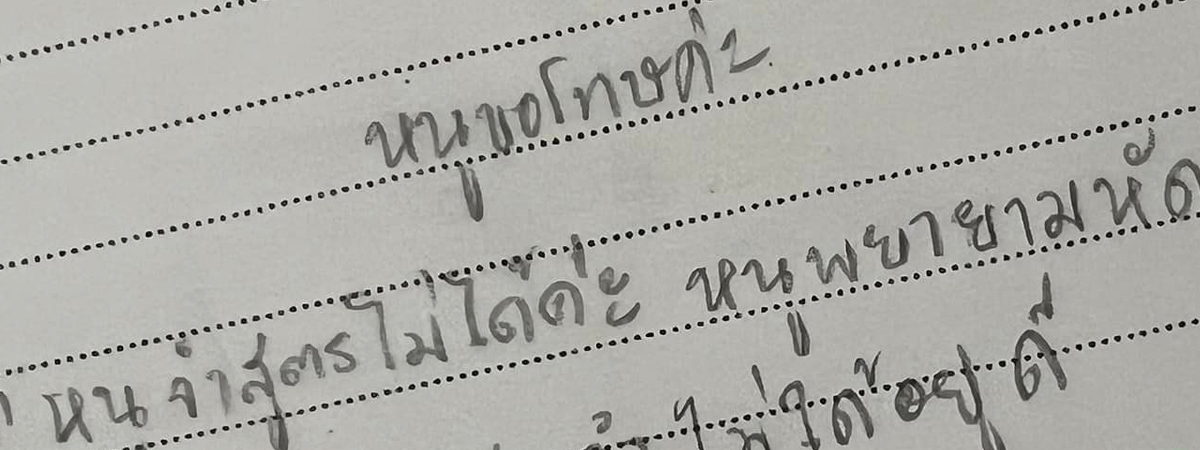 หนูขอโทษค่ะ
หนูจำสูตรไม่ได้ค่ะ หนูพยายามหัด
ไม่ได้อยู่ดี